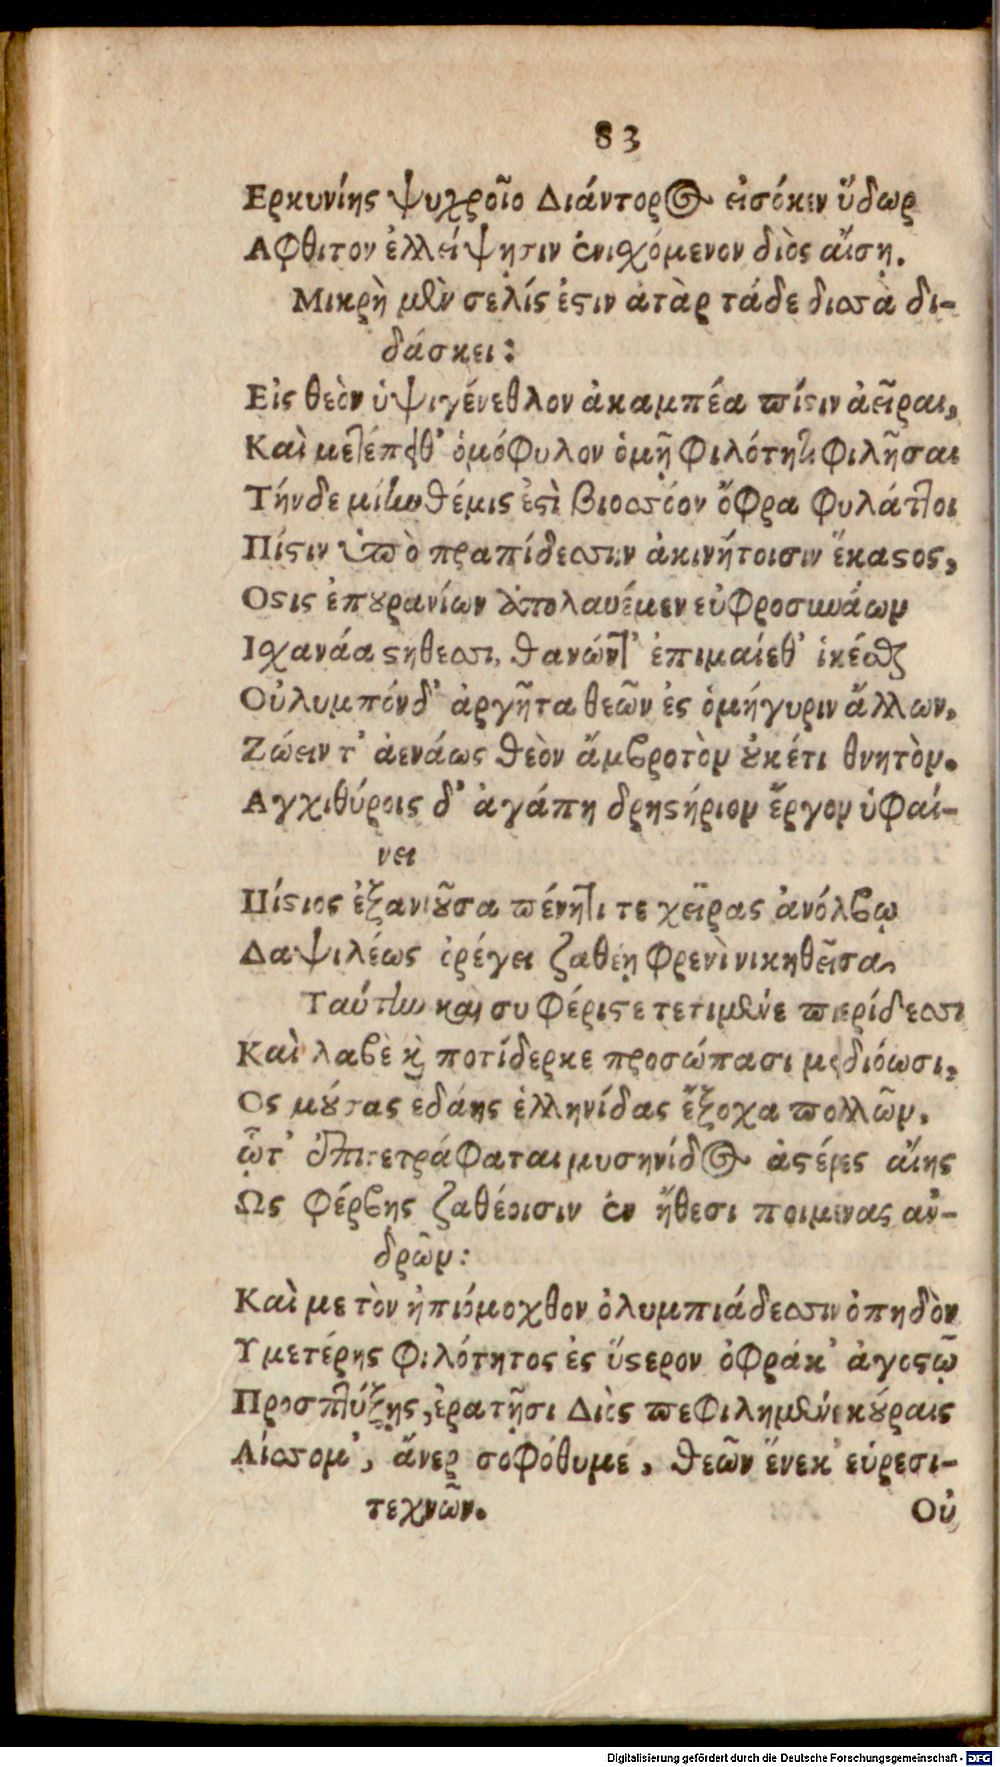 83
Ερκυνίης ψυχροῖο Διάντορος εἰσόκεν ὕδωρ
Αφθιτον ἐλλείψησιν ἐνιχόμενον διὸς αἴσῃ.
Μικρὴ μὲν σελίς ἐστιν ἀτὰρ τάδε δισσὰ δι-
δάσκει:
Εἰς θεὸν ὑψιγένεθλον ἀκαμπέα πίστιν ἀεῖραι,
Καὶ μετέπειθ' ὁμόφυλον ὁμῇ φιλότητι φιλῆσαι
Τήνδε μίτην θέμις ἐστὶ βιοσσόον ὄφρα φυλάττοι
Πίστιν ὑπὸ πραπίδεσσιν ἀκινήτοισιν ἕκαστος,
Οστις ἐπουρανίων ἀπολαυέμεν εὐφροσυνάων
Ιχανάα στήθεσσι, θανών τ' ἐπιμαίεθ' ἱκέσθαι
Οὐλυμπόνδ' ἀργῆτα θεῶν ἐς ὁμήγυριν ἄλλων,
Ζώειν τ' ἀενάως θεὸν ἄμβροτὸν οὐκέτι θνητὸν.
Αγχιθύροις δ' ἀγάπη δρηστήριον ἔργον ὑφαί-
νει
Πίστιος ἐξανιοῦσα πένητι τε χεῖρας ἀνόλβῳ
Δαψιλέως ὀρέγει ζαθέῃ φρενὶ νικηθεῖσα,
Ταύτην καὶ συ φέριστε τετιμένε πιερίδεσσι
Καὶ λαβὲ καὶ ποτίδερκε προσώπασι μειδιόωσι,
Ος μούσας εδάης ἑλληνίδας ἔξοχα πολλῶν,
ᾧτ' ἐπιτετράφαται μυσηνίδος ἀστέρες αἴης
Ως φέρβης ζαθέοισιν ἐν ἤθεσι ποιμένας ἀν-
δρῶν:
Καὶ με τὸν ἠπιόμοχθον ὀλυμπιάδεσσιν ὀπηδὸν
Υμετέρης φιλότητος ἐς ὕστερον ὀφράκ' ἀγοστῷ
Προσπτύξῃς, ἐρατῇσι Διὸς πεφιλημένε κούραις
Λίσσομ', ἄνερ σοφόθυμε, θεῶν ἕνεκ' εὑρεσι-
τεχνῶν.
Οὐ
Digitalisierung gefördert durch die Deutsche Forschungsgemeinschaft - DFG